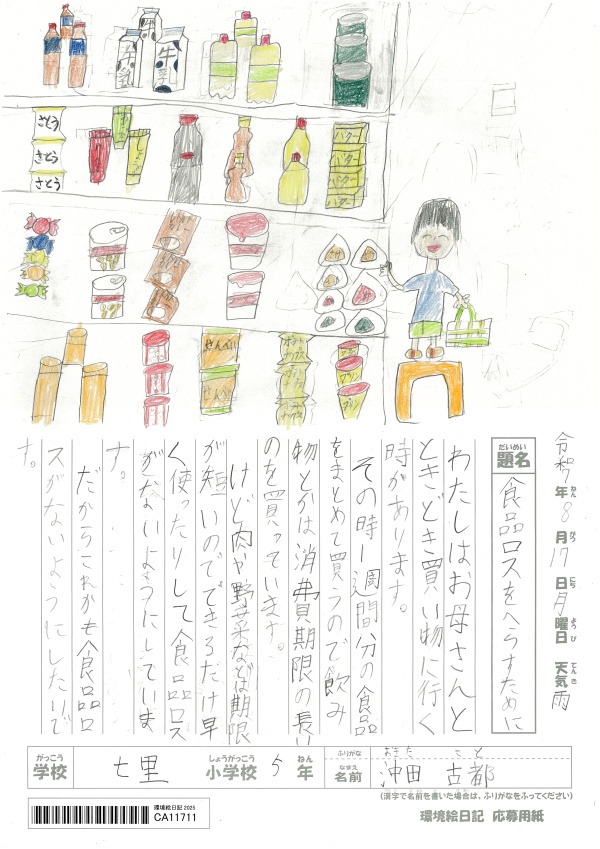 牛乳
牛乳
さとう
さとう
さとう
バター
バター
バター
バター
せんべい
せんべい
ポテトチップス
プリン
プリン
プリン
令和7年8月17日月曜日 天気雨
ねん がつ にち ようび てんき
だいめい
題名 食品ロスをへらすために
わたしはお母さんと
ときどき買い物に行く
時があります。
その時1週間分の食品
をまとめて買うので飲み
物とかは消費期限の長い
のを買っています。
けど肉や野菜などは期限
が短いのでできるだけ早
く使ったりして食品ロス
がないようにしていま
す。
だからこれからも食品ロ
スがないようにしたいで
す。
がっこう しょうがっこう ねん
学校 七里 小学校 5年
ふりがな おきた こと
なまえ
名前 沖田 古都
(漢字で名前を書いた場合は、ふりがなをふってください)
環境絵日記 2025
CA11711
環境絵日記 応募用紙